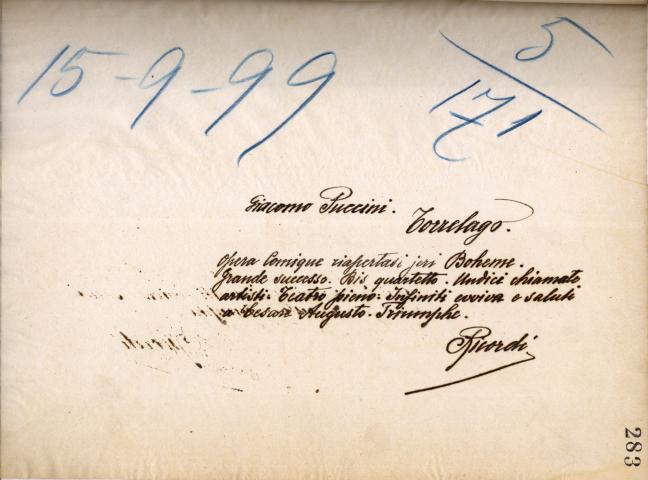 15-9-99
5
171
Giacomo Puccini.
Torrelago.
Opera Comique riapertasi jeri Boheme.
Grande successo. Bis quartetto. Undici chiamate
artisti. Teatro pieno. Infiniti evviva e saluti
a Cesare Augusto. Triumphe.
Ricordi
283